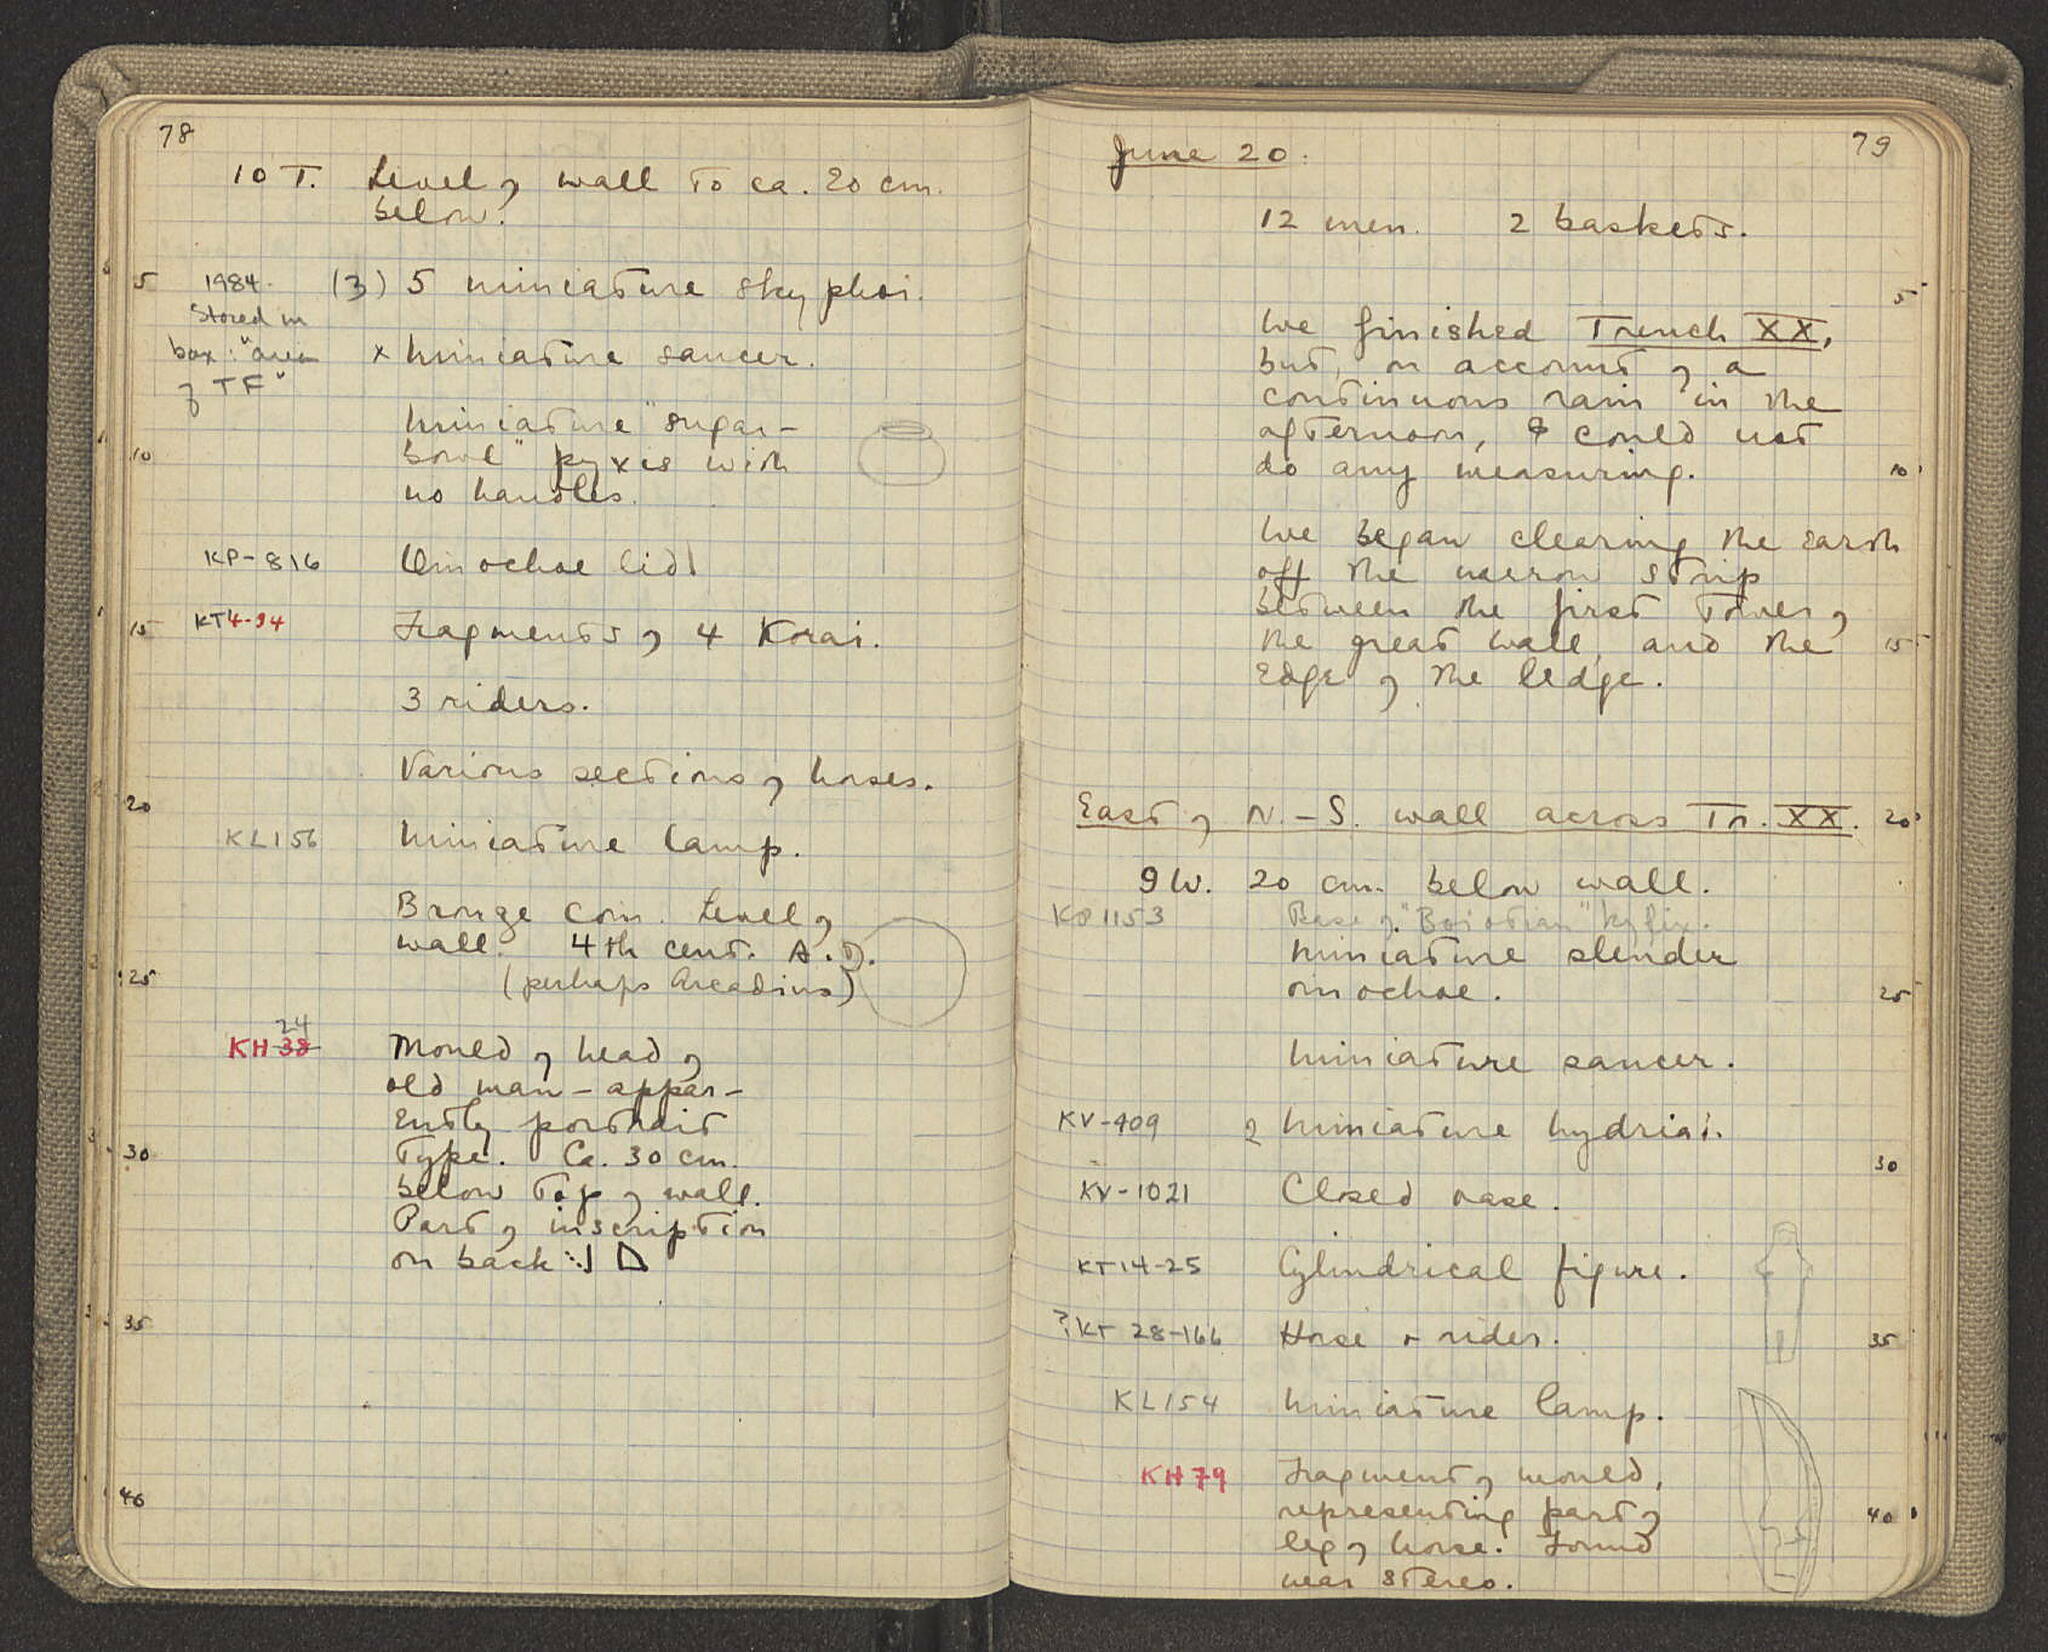 78
10 T. Level of wall to ca. 20 cm.
below.
5 1984. (3) 5 miniature skyphoi.
Stored in
box: "area x Miniature saucer.
of TF"
Miniature "sugar-
10 bowl" pyxis with
no handles.
KP-816 Oinochoe lid
15 KT4-94 Fragments of 4 Korai.
3 riders.
Various sections of horses.
20
KL156 Miniature lamp.
Bronze coin. Level of
wall. 4th cent. A.D.
25 (perhaps Arcadius)
24
KH 38 Mould of head of
old man - appar-
ently portrait
30 type. Ca. 30 cm.
below top of wall.
Part of inscription
on back
35
40
79
June 20.
12 men. 2 baskets.
5
We finished Trench XX,
but, on account of a
continuous rain in the
afternoon, I could not
do any measuring. 10
We began clearing the earth
off the narrow strip
between the first tower of
the great wall, and the 15
edge of the ledge.
East of N.-S. wall across Tr. XX. 20
9 W. 20 cm. below wall.
KP1153 Base of "Boiotian" kylix.
Miniature slender
oinochoe. 25
Miniature saucer.
KV-909 2 Miniature hydriai.
30
KV-1021 Closed vase.
KT14-25 Cylindrical figure.
? KT 28-166 Horse + rider. 35
KL154 Miniature lamp.
KH79 Fragment of mould,
representing part of 40
leg of horse. Found
near stereo.